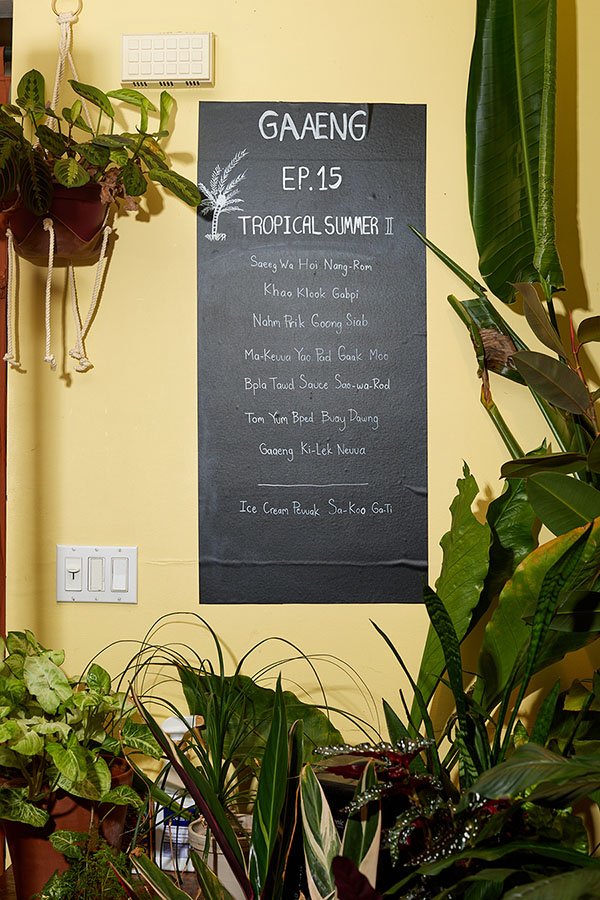 GAAENG
EP.15
TROPICAL SUMMER II
Saeeg Wa Hoi Nang-Rom
Khao Klook Gabpi
Nahm Prik Goong Siab
Ma-Keuua Yao Pad Gaak Moo
Bpla Tawd Sauce Sao-wa-Rod
Tom Yum Bped Buay Dawng
Gaaeng Ki-Lek Neuua
Ice Cream Peuuak Sa-Koo Ga-Ti